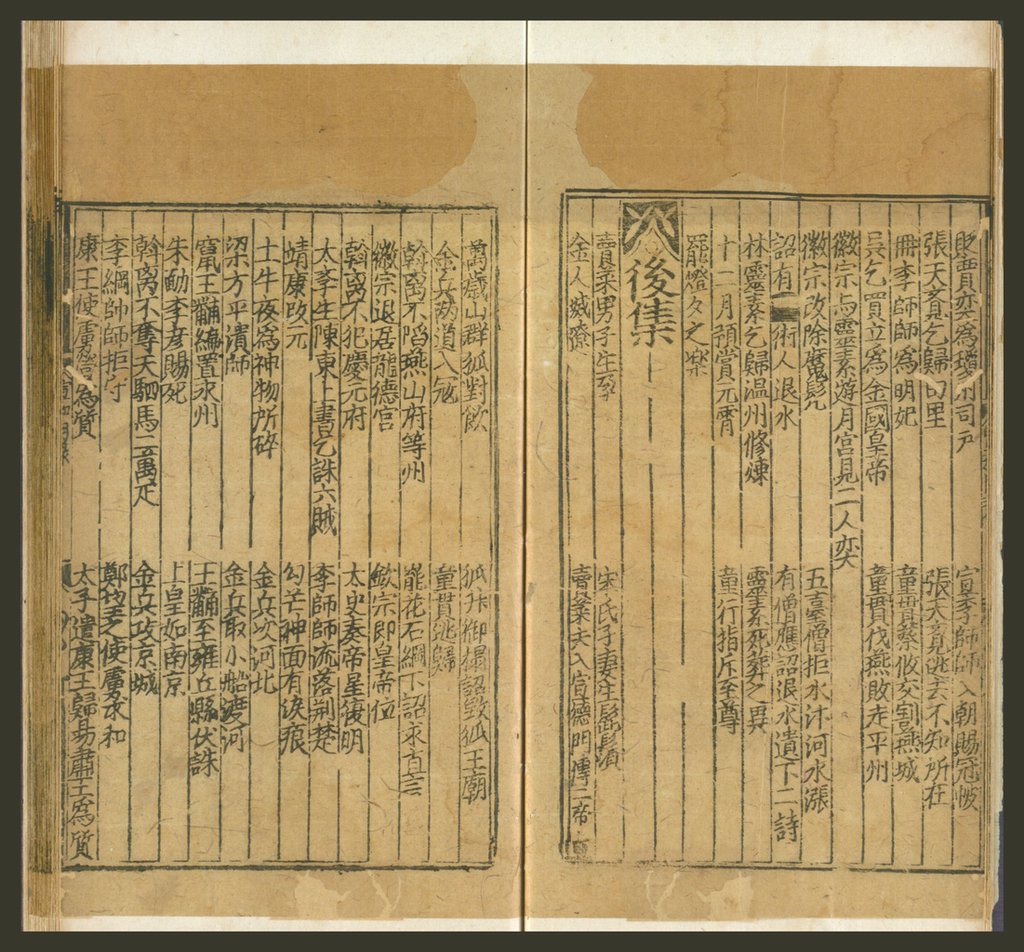 貶賈奕為瓊州司戶　宣李師師入朝賜冠帔
張天覔乞歸田里　張天覔逃去不知所在
冊李師師為明妃　童貫蔡攸交割燕城
吳乞買立為金國皇帝　童貫伐燕敗走平州
徽宗与靈素遊月宮見二人奕
徽宗改除魔髠　五臺僧拒水汴河水漲
詔有術人退水　有僧應詔退水遺下二詩
林靈素乞歸温州修煉　靈素死葬之異
十二月預賞元霄　童行指斥至尊
罷燈夕之樂
後集
賣菜男子生孕　宋氏子妻生髭鬚
金人滅遼　賣菜夫入宣德門傳二帝
萬歲山群狐對飲　狐升御榻詔毀狐王廟
金兵兩道入冦　童貫逃歸
斡离不陷燕山府等州　罷花石綱下詔求直言
徽宗退居龍德宫　欽宗即皇帝位
斡离不犯慶元府　太史奏帝星復明
太學生陳東上書乞誅六賊　李師師流落荆楚
靖康改元　勾芒神面有淚痕
土牛夜為神物所碎　金兵攻河北
梁方平潰師　金兵取小船渡河
竄王黼編置永州　王黼至雍丘縣伏誅
朱勔李彦賜死　上皇如南京
斡离不奪天駟馬二萬疋　金兵攻京城
李綱帥師拒守　鄭望之使虜求和
康王使虜營為質　太子遣康王歸易肅王為質